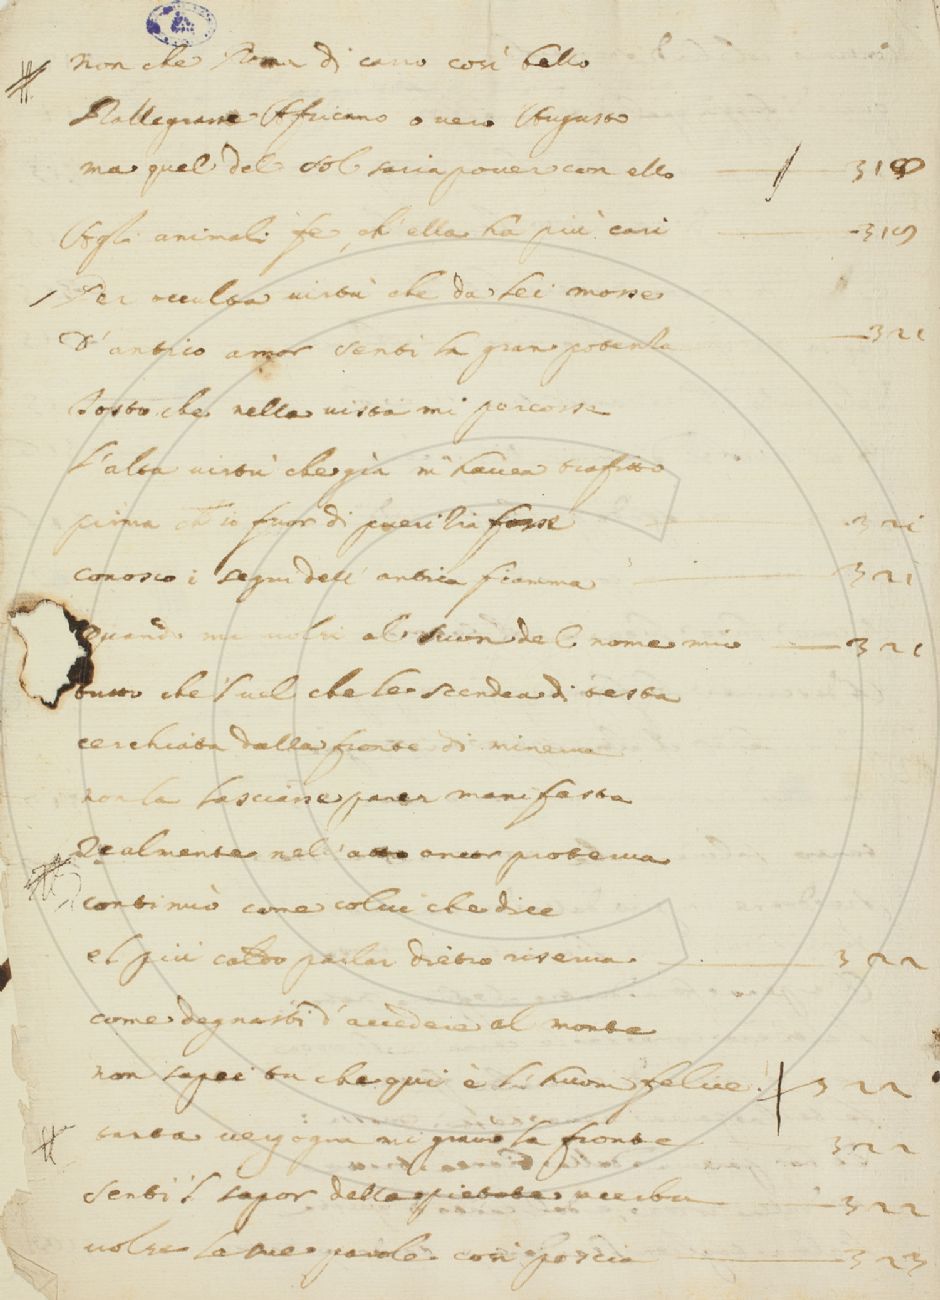 non che Roma di carro così bello
Rallegrasse Affricano o vero Augusto
ma quel del sol saria pover con ello 319
Agli animali fe, ch'ella ha più cari 319
Per occulta virtù che da lei mosse
D'antico amor senti la gran potenza 321
Tosto che nella vista mi percosse
L'alta virtù che già m'havea trafitto
prima ch'io fuor di pueritia fosse 321
conosco i segni dell'antica fiamma 321
Quando mi volsi al suon del nome mio 321
tutto che'l vel che le scendea di testa
cerchiata dalla fronte di minerva
non la lasciasse parer manifesta
Realmente nell'atto ancor proterva
continuò come colui che dice
el più caldo parlar dietro riserva 322
come degnasti d'accedere al monte
non sapei tu che qui è l'huom felice! 322
tanta vergogna mi gravò la fronte 322
senti'l sapor della pietate acerba 322
volse le sue parole così poscia 323